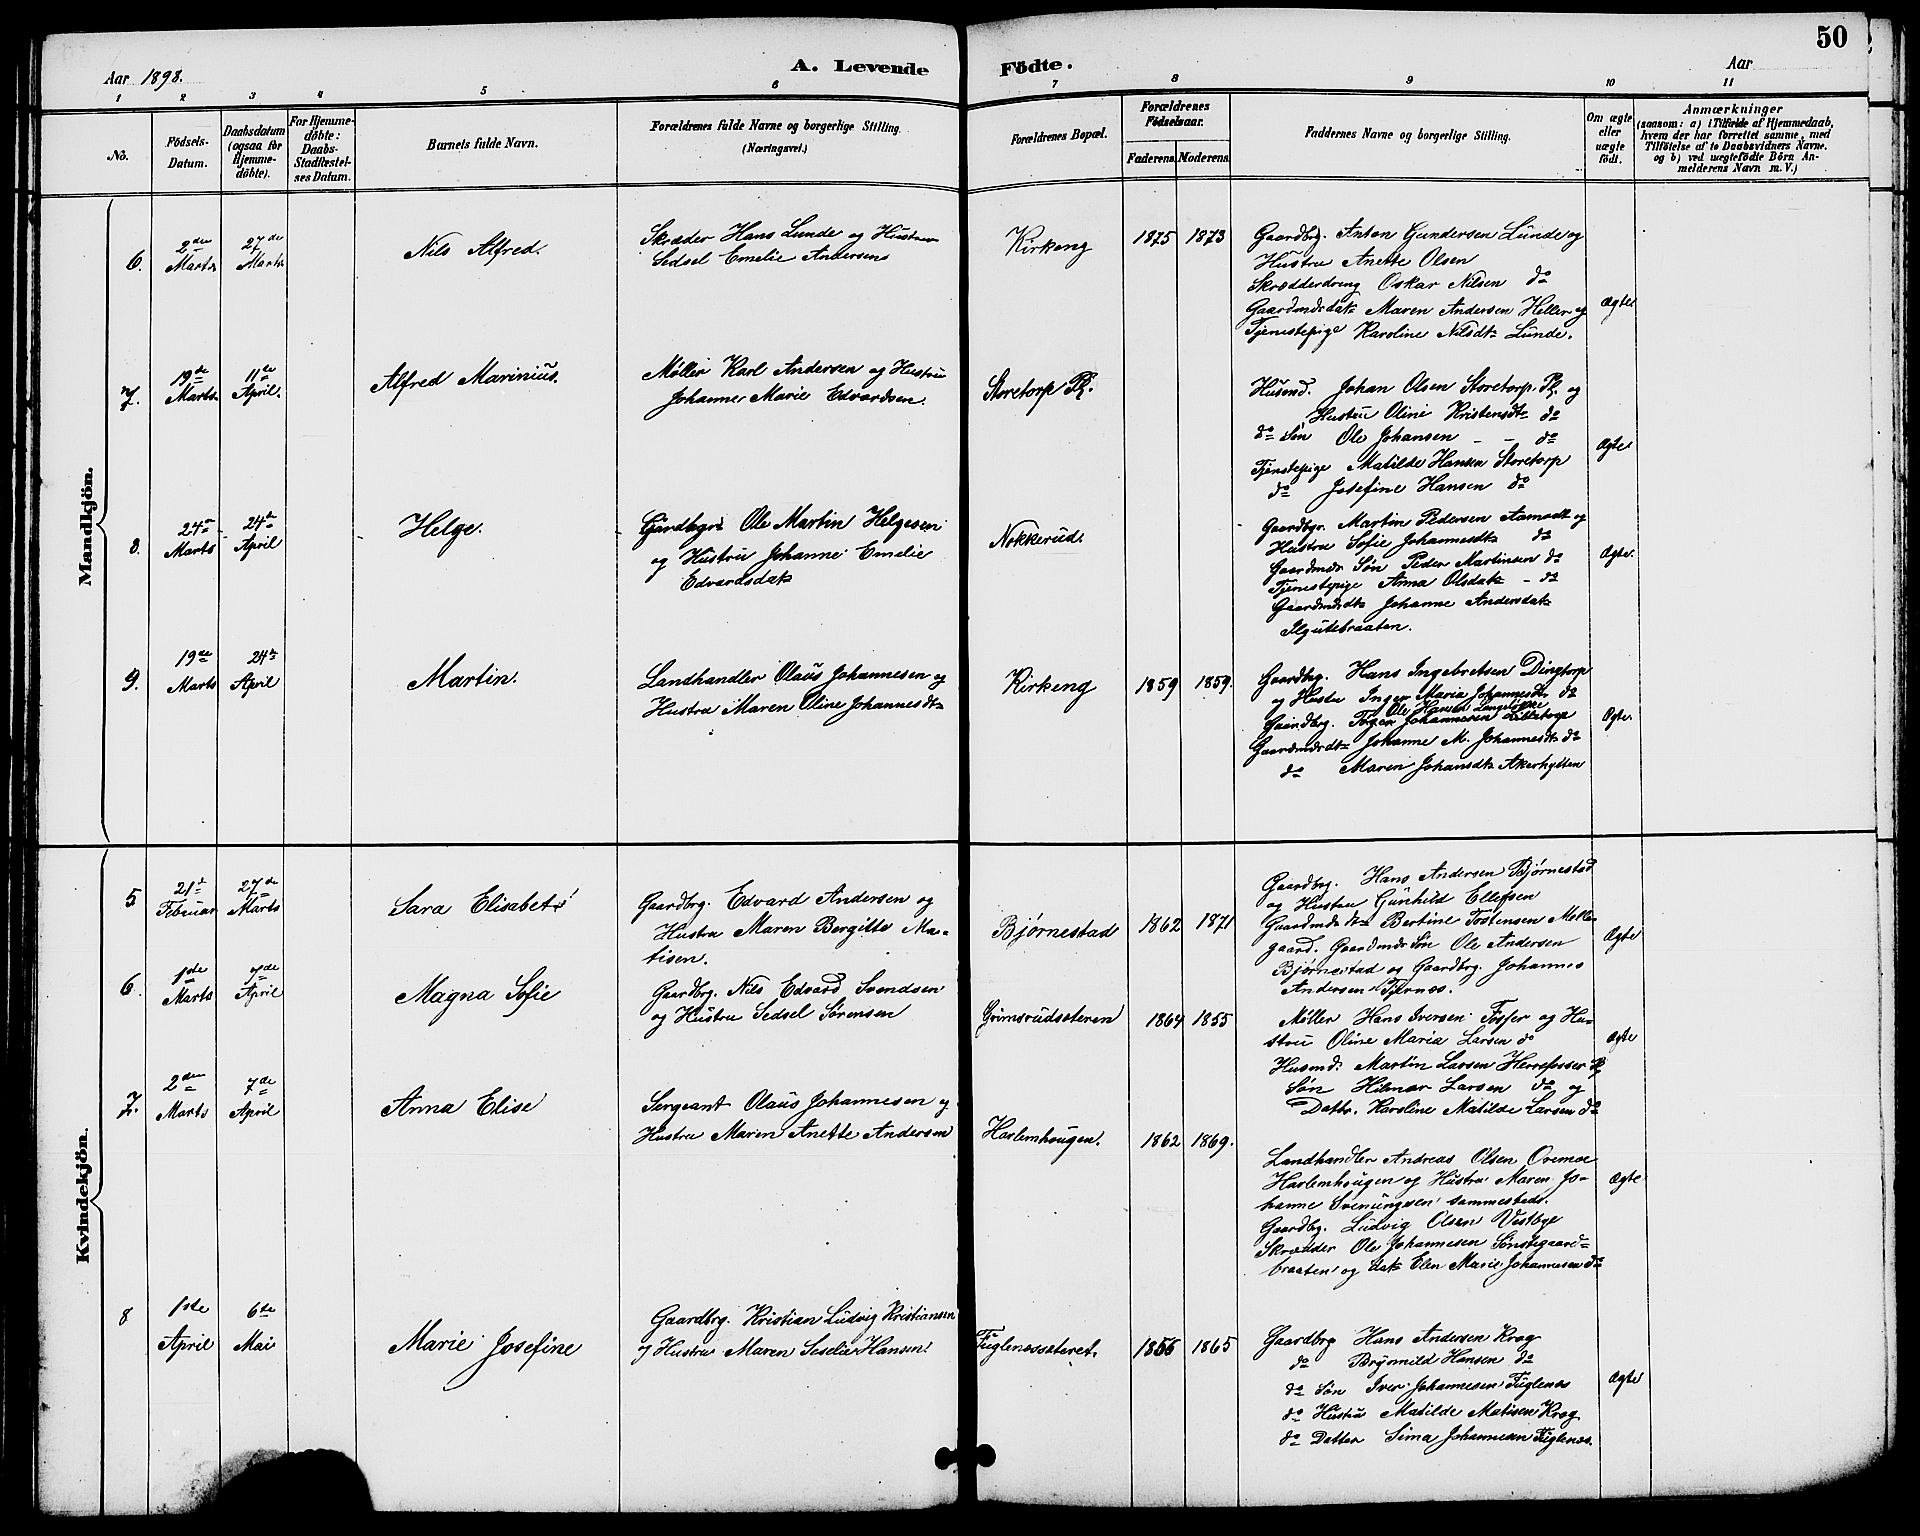 50
Aar 1898.
A. Levende Födte.
Aar
1 2 3 4 5 6 7 8 9 10 11
No.
Födsels-
Datum.
Daabsdatum
(ogsaa for
Hjemme-
döbte).
For Hjemme-
döbte:
Daabs-
Stadfæstel-
ses Datum.
Barnets fulde Navn.
Forældrenes fulde Navne og borgerlige Stilling.
(Næringsvei.)
Forældrenes Bopæl.
Forældrenes
Födselsaar.
Faderens. Moderens.
Faddernes Navne og borgerlige Stilling.
Om ægte
eller
uægte
födt.
Anmærkninger
(saasom: a) i Tilfælde af Hjemmedaab,
hvem der har forrettet samme, med
Tilföielse af to Daabsvidners Navne.
og b) ved uægtefödte Börn An-
melderens Navn m. V.)
Mandkjön.
6. 2den Marts 27de Marts
Nils Alfred.
Skræder Hans Lunde og Hustru
Sedsel Emelie Andersens
Kirkeng
1875 1873
Gaardbrg. Anton Gundersen Lunde og
Hustru Anette Olsen
Skrædderdreng Oskar Nilsen do
Gaardmdsdatr Maren Andersen Heller og
Tjenestepige Karoline Nilsdtr Lunde.
Ægte
7. 19de Marts. 11te April.
Alfred Marinius.
Møller Karl Andersen og Hustru
Johanne Marie Edvardsen.
Storetorp Pl.
Husmd. Johan Olsen Storetorp. Pl. og
Hustru Oline Kristensdtr do
do Søn Ole Johansen - - do
Tjenstepige Matilde Hansen Storetorp
do Josefine Hansen do
Ægte
8. 24de Marts 24de April
Helge.
Gårdbgr. Ole Martin Helgesen
og Hustru Johanne Emelie
Edvardsdatr
Nokkerud.
Gaardbgr. Martin Pedersen Aamodt og
Hustru Sofie Johannesdtr do
Gaardmds Søn Peder Martinsen do
Tjenestepige Anna Olsdatr - do
Gaardmdsdtr Johanne Andersdatr
Ilgutebraaten.
Ægte.
9. 19de Marts 24de April
Martin.
Landhandler Olaus Johannesen og
Hustru Maren Oline Johannesdtr
Kirkeng
1859 1859.
Gaardbrg. Hans Ingebretsen Dingtorp
og Hustru Inger Maria Johannesdtr do
Ole Hansen Langeløkke
Gaardbrg. Torger Johannesen Lilletorp
Gaardmdsdtr Johanne M. Johannesdtr do
do Maren Johansdtr Akerhytten
Ægte.
Kvindekjön.
5 21de Februar 27de Marts
Sara Elisabet
Gaardbrg. Edvard Andersen og
Hustru Maren Bergitte Ma-
tisen.
Bjørnestad
1862 1871
Gaardbrg. Hans Andersen Bjørnestad
og Hustru Gunhild Ellefsen
Gaardmds dtr Bertine Tostensen Melle-
gaard. Gaardmds Søn Ole Andersen
Bjørnestad og Gaardbrg. Johannes
Andersen Tjernæs.
Ægte
6. 1ste Marts 7de April
Magna Sofie
Gaardbrg. Nils Edvard Svendsen
og Hustru Sedsel Sørensen
Grimsrudsæteren
1864 1855
Møller Hans Iversen Fosser og Hu-
stru Oline Maria Larsen do
Husmd. Martin Larsen Herrefosser Pl
Søn Hilmar Larsen do og
Dattr. Karoline Matilde Larsen do
Ægte
7. 2den Marts 7de April
Anna Elise
Sergeant Olaus Johannesen og
Hustru Maren Anette Andersen
Harlemhougen.
1862 1869.
Landhandler Andreas Olsen
Harlemhougen og Hustru Maren Jo-
hanne Svenungsen sammesteds.
Gaardbrg. Ludvig Olsen Vestbye
Skrædder Ole Johannesen Sønstegaard-
braaten og datr Elen Marie Johannesen do
Ægte
8 1ste April 6te Mai
Marie Josefine
Gaardbrg. Kristian Ludvig Kristiansen
og Hustru Maren Hansen
Fuglenæssæteret.
1865
Gaardbrg Hans Andersen Krog
do Brynnild Hansen do
do Søn Iver Johannesen Fuglenæs
do Hustru Matilde Matisen Krog
do Datter Sima Johannesen Fuglenæs.
Ægte